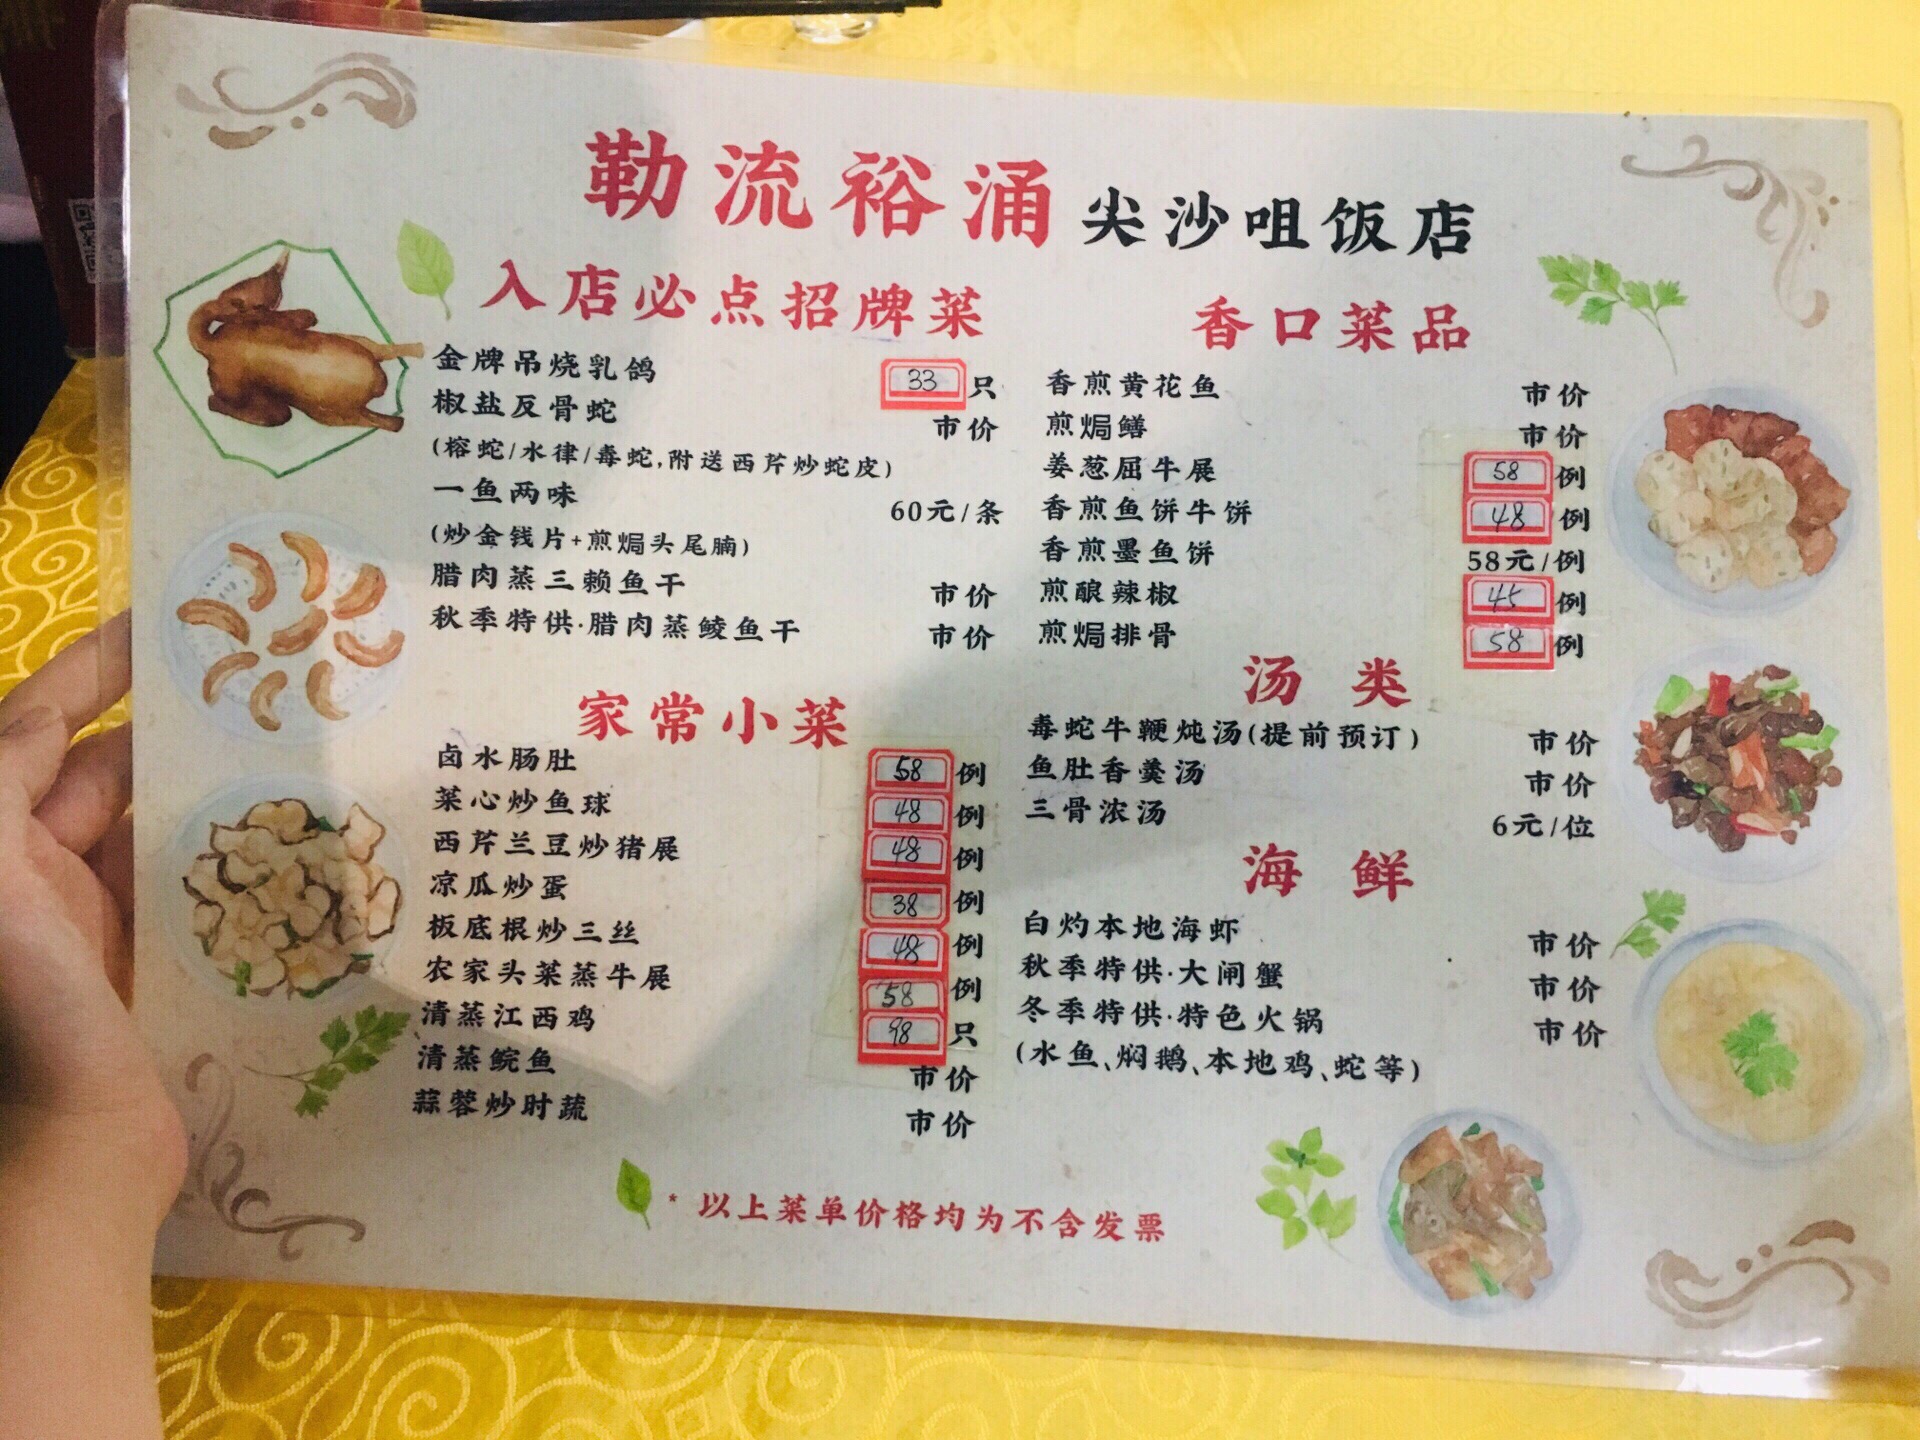 勒流裕涌尖沙咀饭店
入店必点招牌菜
金牌吊烧乳鸽 33 只
椒盐反骨蛇 市价
(榕蛇/水律/毒蛇,附送西芹炒蛇皮)
一鱼两味 60元/条
(炒金钱片+煎焗头尾腩)
腊肉蒸三赖鱼干 市价
秋季特供·腊肉蒸鲮鱼干 市价
家常小菜
卤水肠肚 58 例
菜心炒鱼球 48 例
西芹兰豆炒猪展 48 例
凉瓜炒蛋 38 例
板底根炒三丝 48 例
农家头菜蒸牛展 58 例
清蒸江西鸡 98 只
清蒸鲩鱼 市价
蒜蓉炒时蔬 市价
香口菜品
香煎黄花鱼 市价
煎焗鳝 市价
姜葱屈牛展 58 例
香煎鱼饼牛饼 48 例
香煎墨鱼饼 58元/例
煎酿辣椒 45 例
煎焗排骨 58 例
汤类
毒蛇牛鞭炖汤(提前预订) 市价
鱼肚香羹汤 市价
三骨浓汤 6元/位
海鲜
白灼本地海虾 市价
秋季特供·大闸蟹 市价
冬季特供·特色火锅 市价
(水鱼、焖鹅、本地鸡、蛇等)
* 以上菜单价格均为不含发票